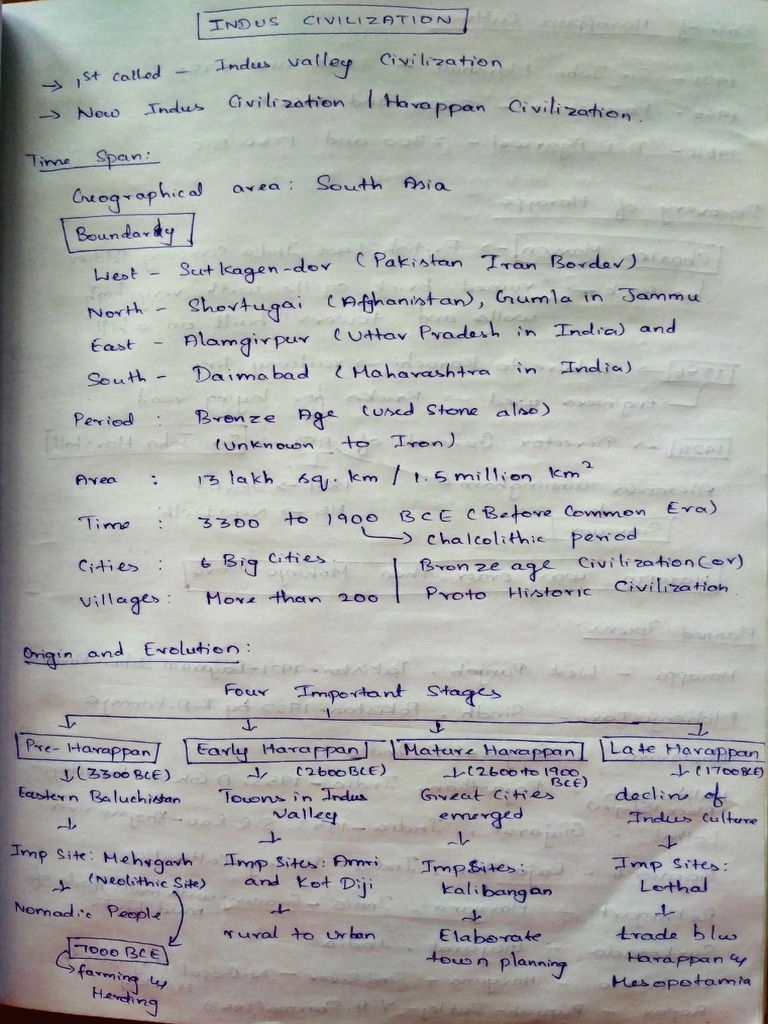 INDUS CIVILIZATION
→ 1st called - Indus valley Civilization
→ Now Indus Civilization / Harappan Civilization.
Time Span:
Geographical area: South Asia
Boundary
West - Sutkagen-dor (Pakistan Iran Border)
North - Shortugai (Afghanistan), Gumla in Jammu
East - Alamgirpur (Uttar Pradesh in India) and
South - Daimabad (Maharashtra in India)
Period : Bronze Age (used Stone also)
(unknown to Iron)
Area : 13 lakh sq. km / 1.5 million km²
Time : 3300 to 1900 BCE (Before Common Era)
→ Chalcolithic period
Cities : 6 Big Cities. | Bronze age Civilization (or)
Villages: More than 200 | Proto Historic Civilization.
Origin and Evolution:
Four Important Stages
Pre-Harappan
↓ (3300 BCE)
Eastern Baluchistan
↓
Imp Site: Mehrgarh
↓ (Neolithic Site)
Nomadic People
7000 BCE
→ farming &
Herding
Early Harappan
↓ (2600 BCE)
Towns in Indus
Valley
↓
Imp Sites: Amri
and Kot Diji
↓
rural to urban
Mature Harappan
↓ (2600 to 1900
BCE)
Great Cities
emerged
↓
Imp Sites:
Kalibangan
↓
Elaborate
town planning
Late Harappan
↓ (1700 BCE)
decline of
Indus Culture
↓
Imp Sites:
Lothal
↓
trade b/w
Harappan &
Mesopotamia